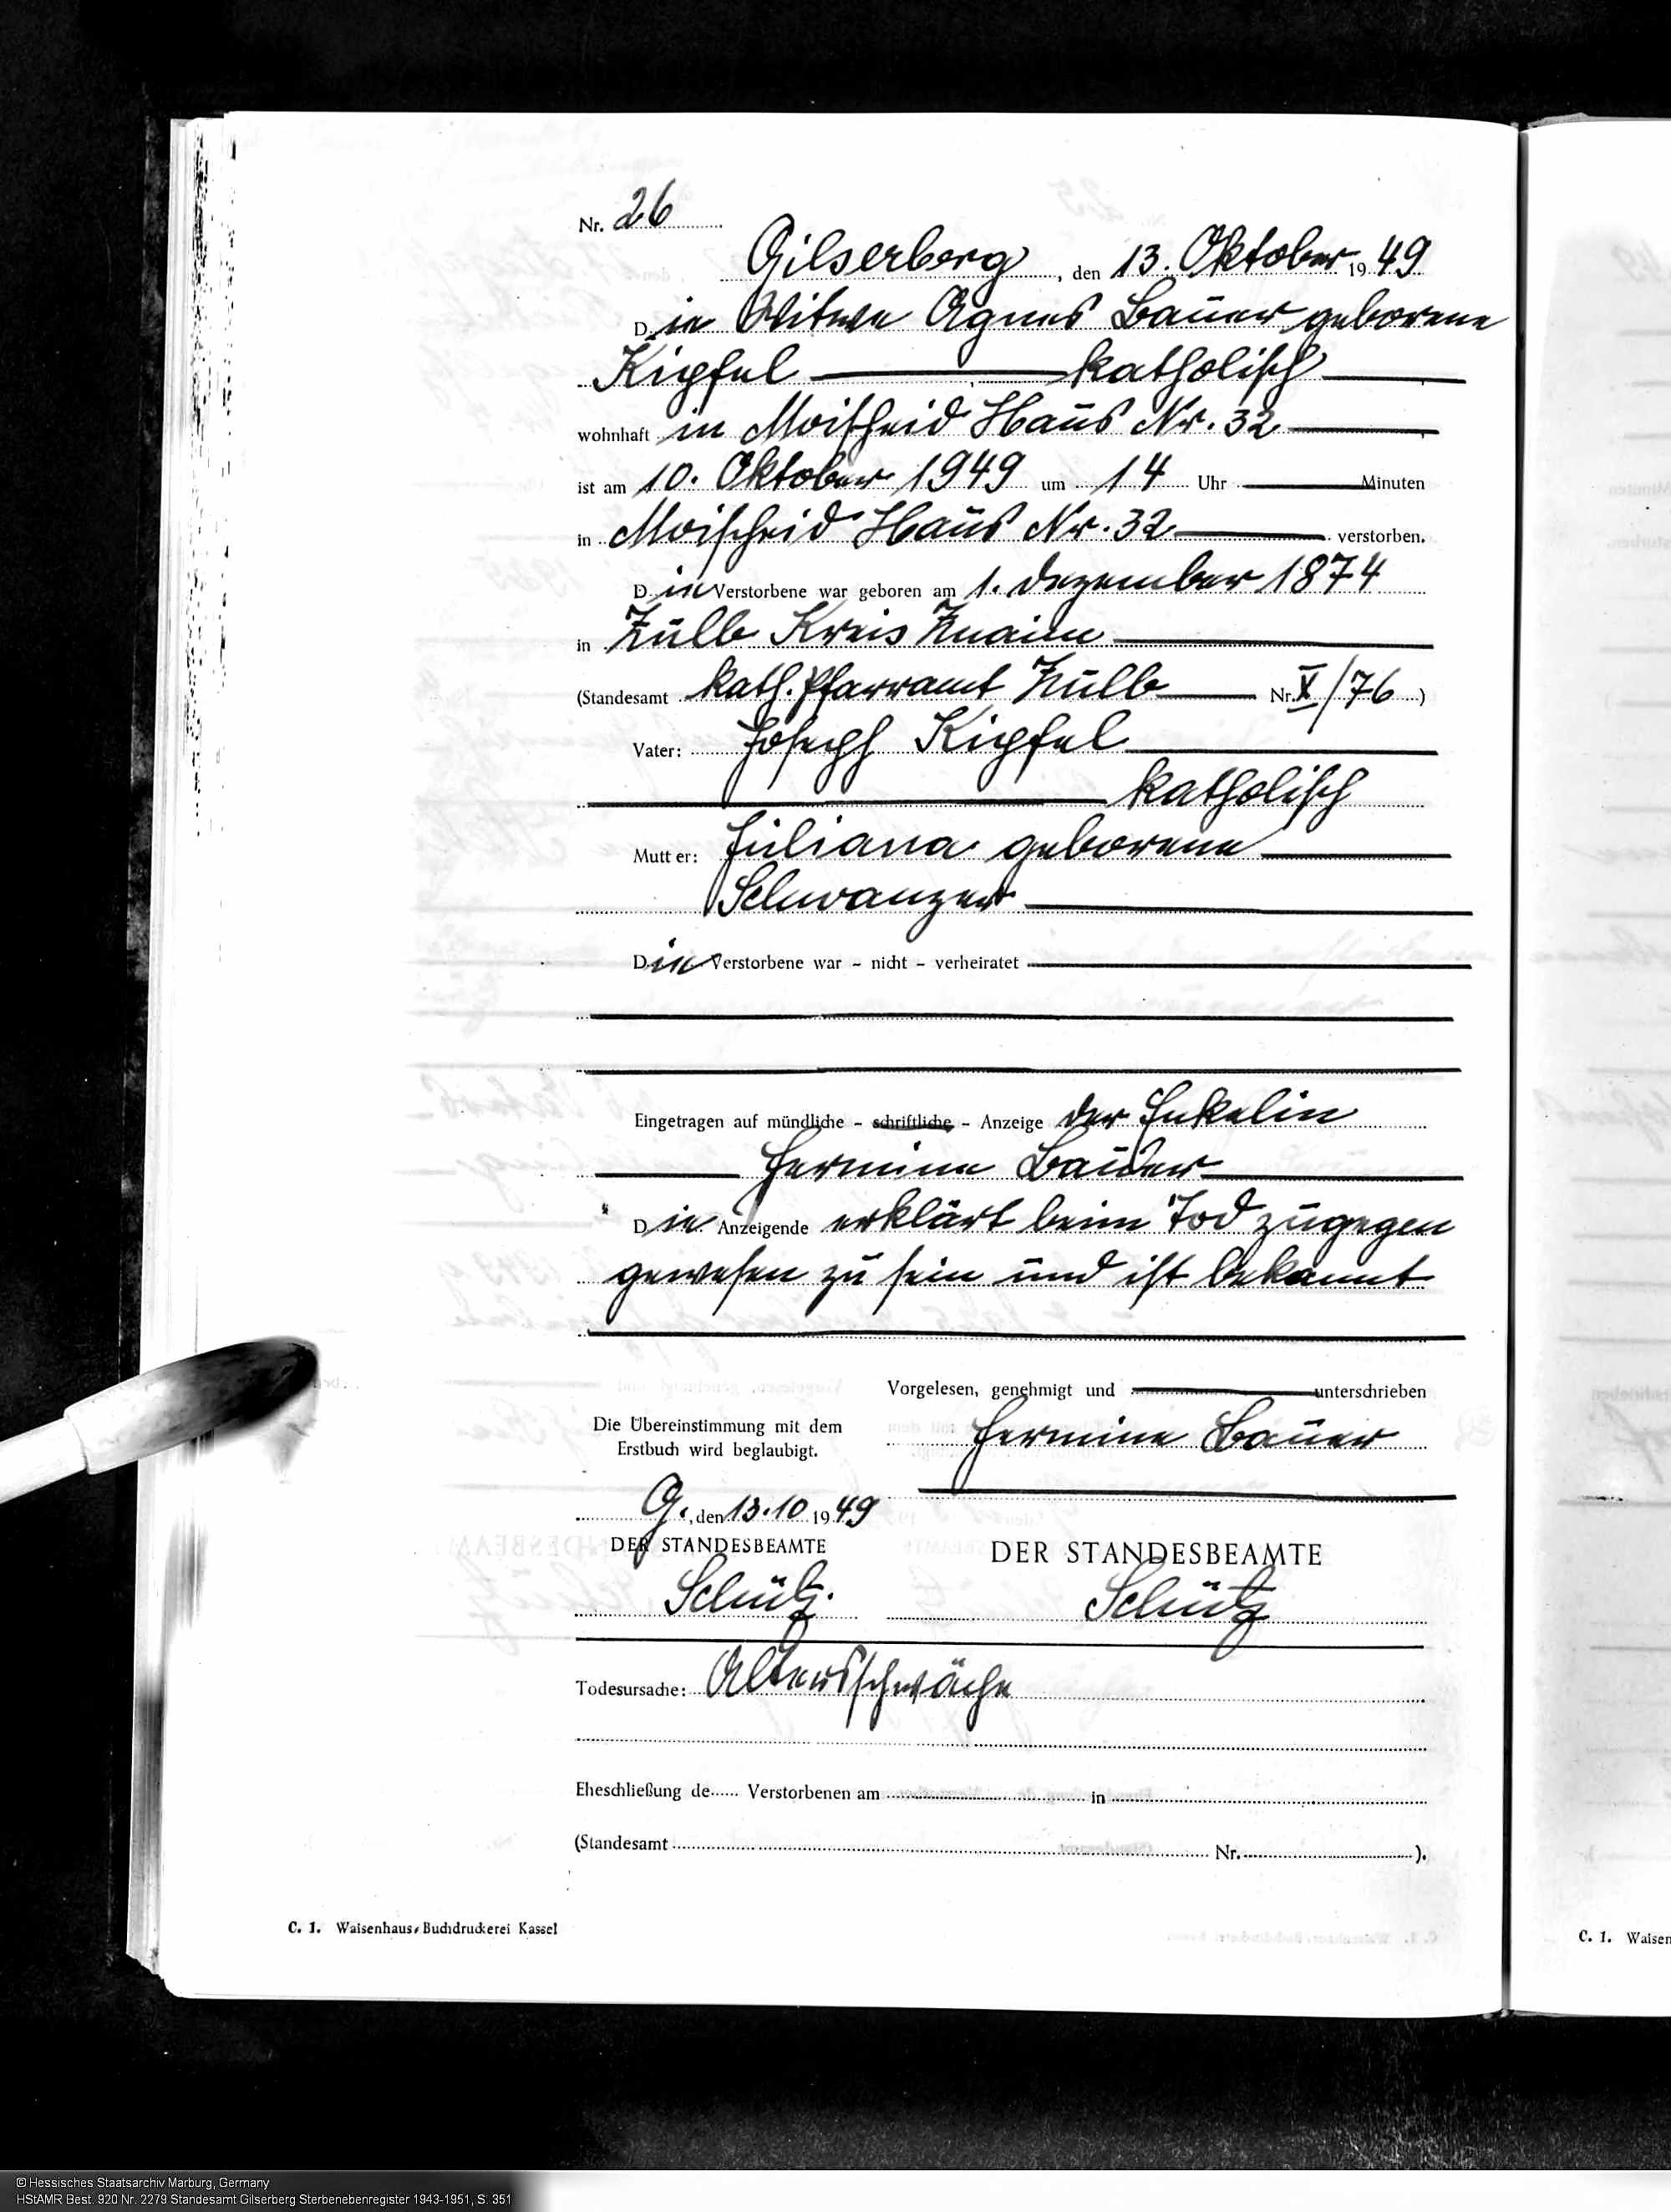 Nr. 26
Gilserberg, den 13. Oktober 1949
Die Witwe Agnes Bauer geborene
Kipfel katholisch
wohnhaft in Moischeid Haus Nr. 32
ist am 10. Oktober 1949 um 14 Uhr Minuten
in Moischeid Haus Nr. 32 verstorben.
Die Verstorbene war geboren am 1. Dezember 1874
in Zulb Kreis Znaim
(Standesamt kath. Pfarramt Zulb Nr. V/76)
Vater: Joseph Kipfel
katholisch
Mutter: Juliana geborene
Schwanzer
Die Verstorbene war - nicht - verheiratet
Eingetragen auf mündliche - schriftliche - Anzeige der Enkelin
Hermine Bauer
Die Anzeigende erklärt beim Tod zugegen
gewesen zu sein und ist bekannt
Vorgelesen, genehmigt und unterschrieben
Die Übereinstimmung mit dem
Erstbuch wird beglaubigt.
Hermine Bauer
G., den 13.10 1949
DER STANDESBEAMTE
DER STANDESBEAMTE
Schütz.
Schütz
Todesursache: Altersschwäche
Eheschließung de...... Verstorbenen am in
(Standesamt Nr. ).
C. 1. Waisenhaus-Buchdruckerei Kassel
C. 1. Waisen
© Hessisches Staatsarchiv Marburg, Germany
HStAMR Best. 920 Nr. 2279 Standesamt Gilserberg Sterbenebenregister 1943-1951, S. 351